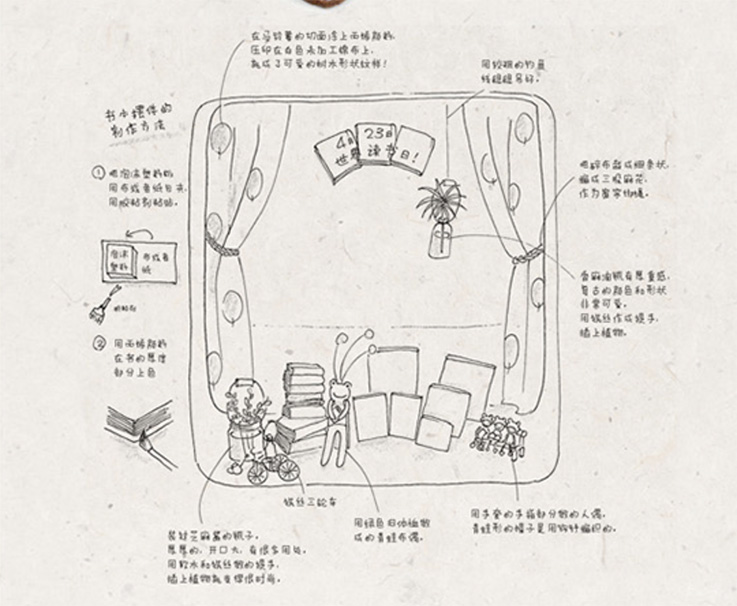 在莲藕的切面涂上丙烯颜料,
压印在白色未加工棉布上,
就成了可爱的树木形状纹样!
用较粗的钓鱼
线轻轻吊好。
书小摆件的
制作方法
4月23日
世界读书日!
① 把泡沫塑料的
用布或者纸包夹,
用胶粘剂粘贴。
把碎布裁成细条状,
编成三股麻花,
作为窗帘绑绳。
泡沫
塑料
布或者
纸
胶粘剂
香麻油瓶有厚重感,
复古的颜色和形状
非常可爱。
用铁丝作成提手,
插上植物。
② 用丙烯颜料
在书的厚度
部分上色
铁丝三轮车
用绿色旧体恤做
成的青蛙布偶。
用手套的手指部分做的人偶。
青蛙形的帽子是用钩针编织的。
装过芝麻酱的瓶子。
厚厚的,开口大,有很多用处。
用软木和铁丝做的提手,
插上植物就变得很时尚。